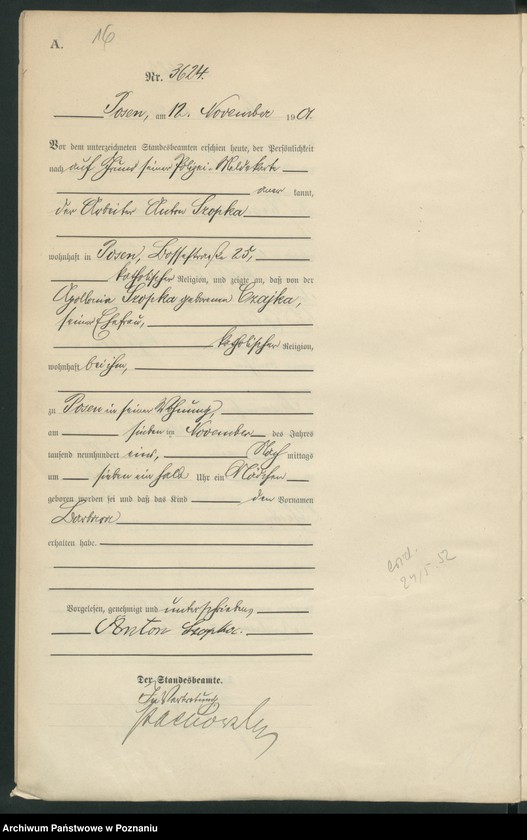 A.
16
Nr. 3624.
Posen, am 12. November 1901.
Vor dem unterzeichneten Standesbeamten erschien heute, der Persönlichkeit
nach auf Grund seiner Polizei-Meldekarte
aner kannt,
der Arbeiter Anton Szopka
wohnhaft in Posen, 25,
katholischer Religion, und zeigte an, daß von der
Apollonia Szopka geborenen Czajka,
seiner Ehefrau,
katholischer Religion,
wohnhaft bei ihm,
zu Posen in seiner Wohnung,
am sieben ten November des Jahres
tausend neunhundert eins, Nach mittags
um sieben ein halb Uhr ein Mädchen
geboren worden sei und daß das Kind den Vornamen
Barbara
erhalten habe.
Vorgelesen, genehmigt und unterschrieben,
Anton Szopka.
Der Standesbeamte.
In Vertretung
24/5. 52
Archiwum Państwowe w Poznaniu